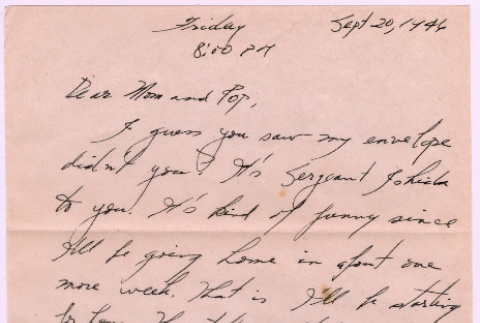 Friday Sept 20, 1946
8:00 PM
Dear Mom and Pop,
I guess you saw my envelope
didn't you? It's Sergeant Ishida
to you. It's kind of funny since
I'll be going home in about one
more week. That is I'll be starting
for home.